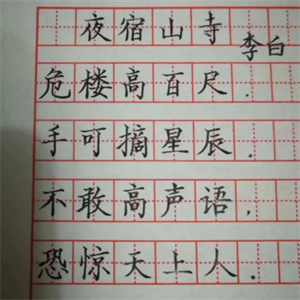 夜宿山寺
李白
危楼高百尺.
手可摘星辰.
不敢高声语,
恐惊天上人.